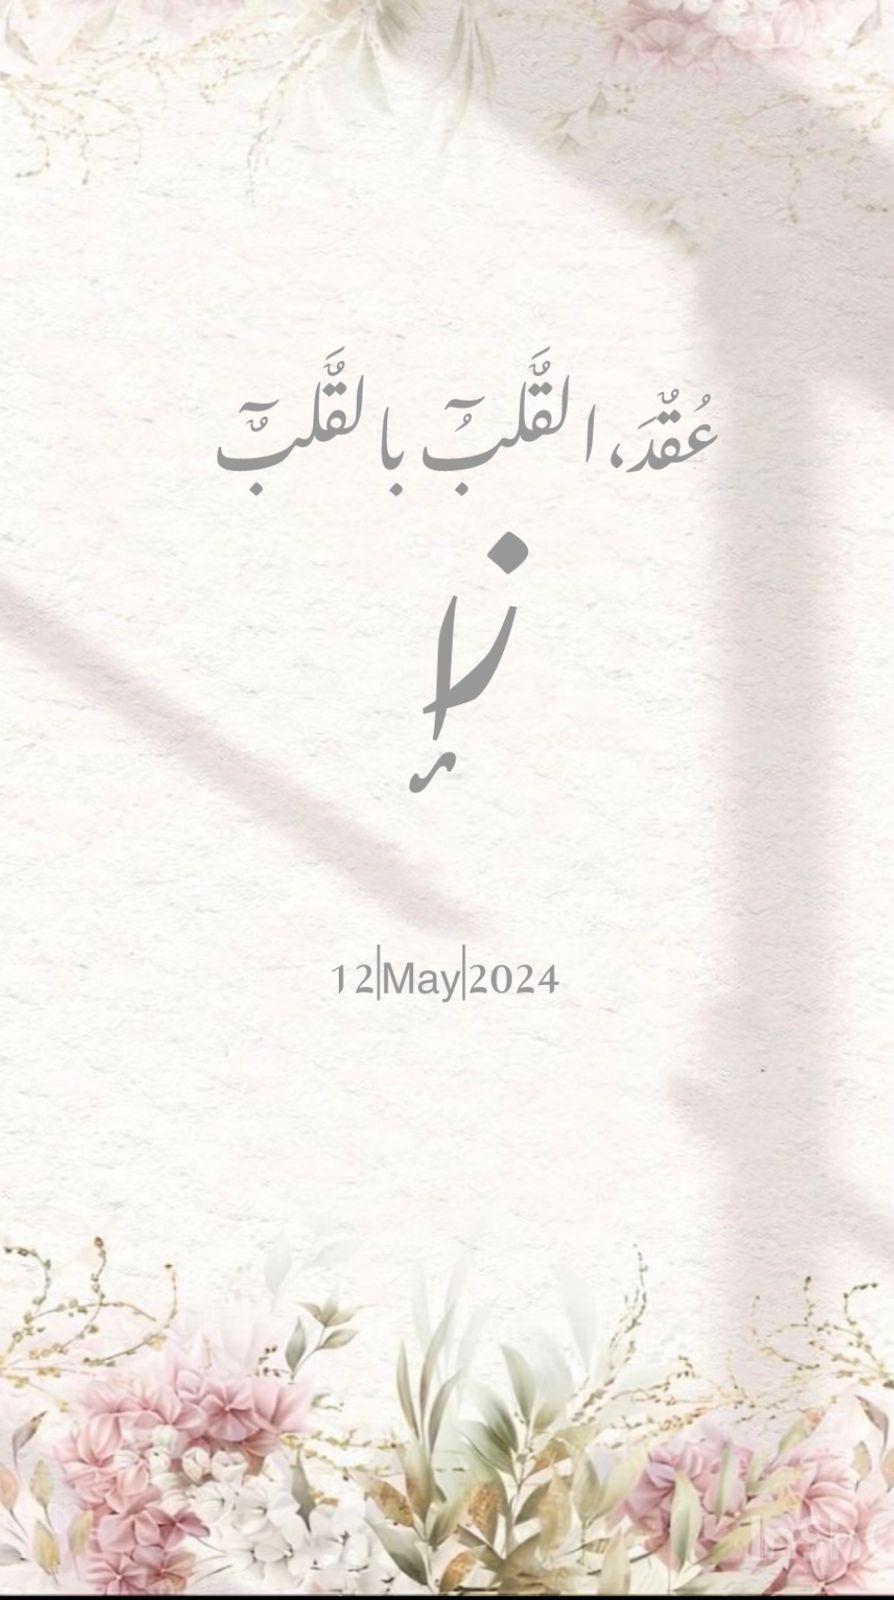 عُقٌدَ، ا لقٌَلبُٓ با لقٌَلبٌٓ
زإ
12|May|2024
InSh